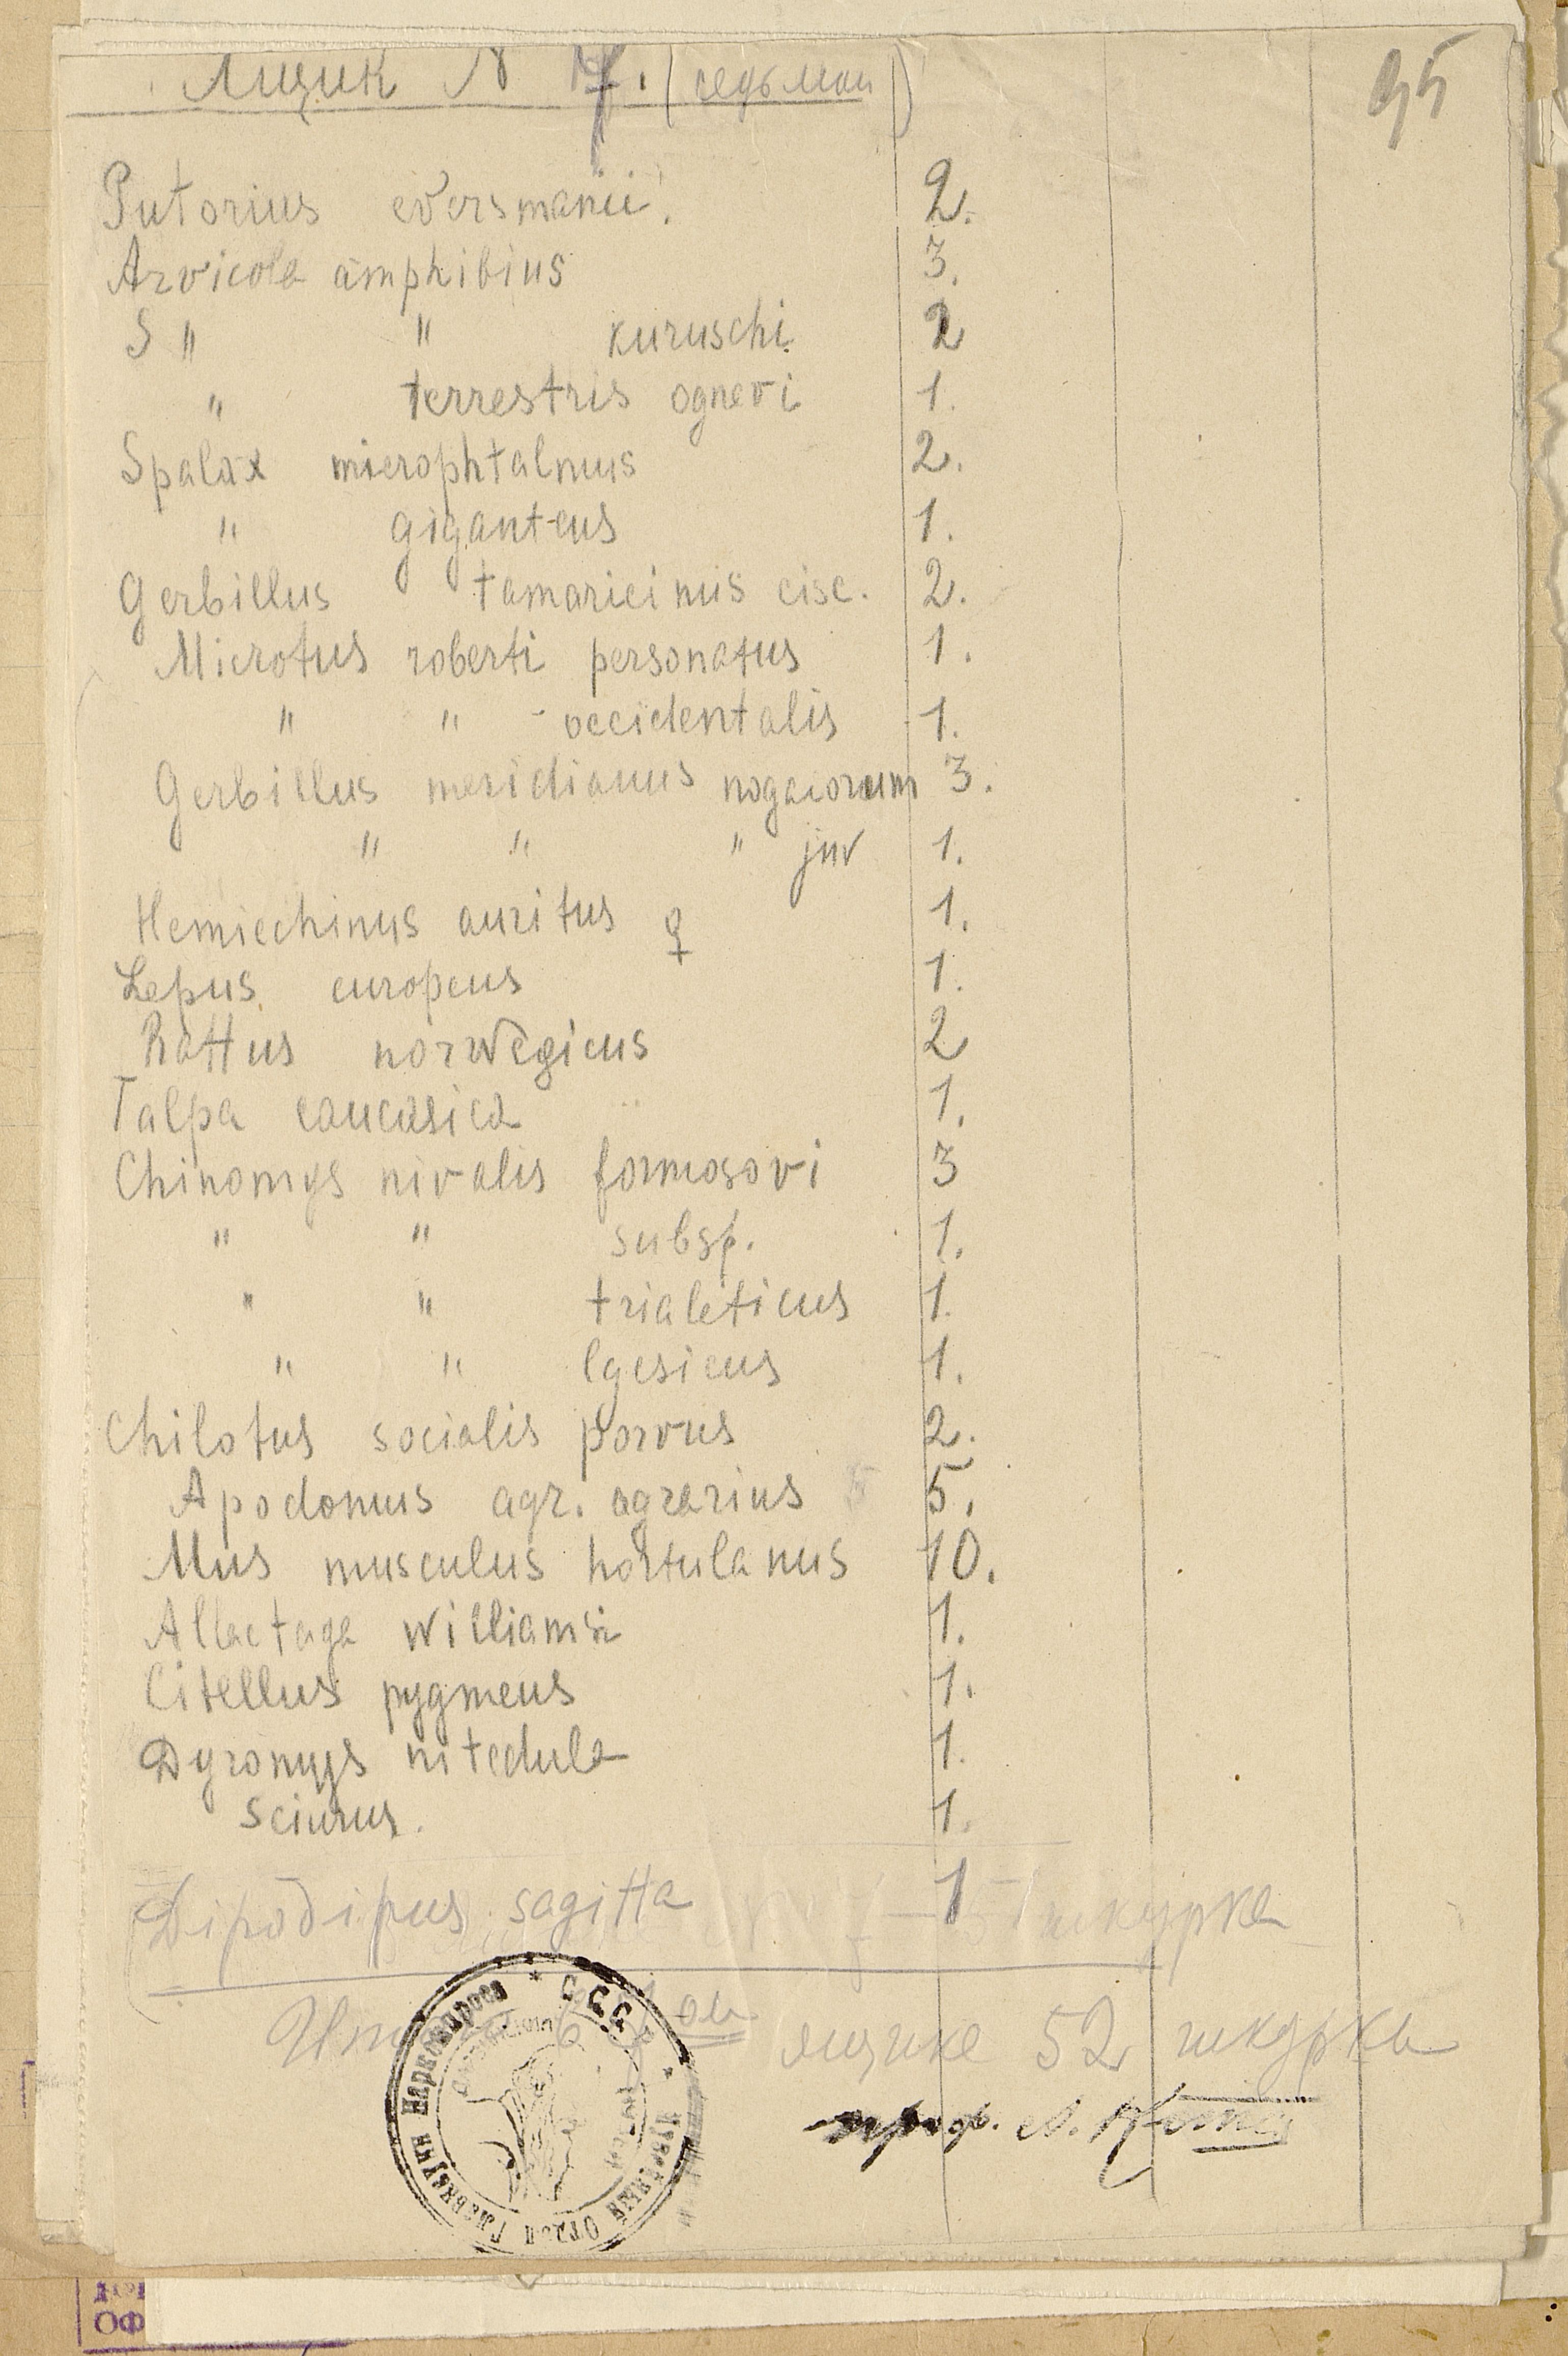 Ящик N 7. (седьмой)
95
Putorius eversmanii. 2.
Arvicola amphibius 3.
S " " kuruschi 2
" terrestris ognevi 1.
Spalax microphtalmus 2.
" giganteus 1.
Gerbillus tamaricinus cisc. 2.
Microtus roberti personatus 1.
" " occidentalis 1.
Gerbillus meridianus nogaiorum 3.
" " " juv 1.
Hemiechinus auritus ♀ 1.
Lepus europeus 1.
Rattus norwegicus 2
Talpa caucasica 1.
Chinomys nivalis formosovi 3
" " subsp. 1.
" " trialeticus 1.
" " lgesicus 1.
Chilotus socialis parvus 2.
Apodomus agr. agrarius 5.
Mus musculus hortulanus 10.
Allactaga williamsi 1.
Citellus pygmeus 1.
Dyromys nitedula 1.
Sciurus. 1.
Dipodipus sagitta 1 шкурка
ящике 52 шкурки
проф. А.
Наркомпроса
ОФ